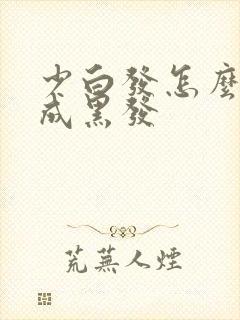 少白發怎麼
成黑發
荒蕪人煙